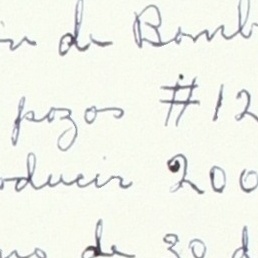 de Bomb
pozos #12
oducir 200
de 30 d